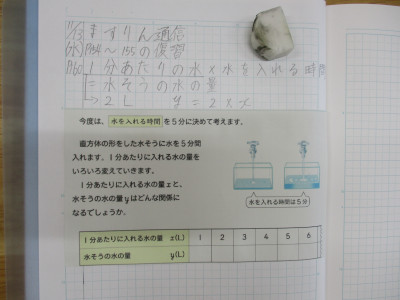 11/13 ますりん通信
(水) P154～155の復習
P160 1分あたりの水×水を入れる時間
=水そうの水の量
→2L y=2×x
今度は、水を入れる時間を5分に決めて考えます。
直方体の形をした水そうに水を5分間
入れます。1分あたりに入れる水の量を
いろいろ変えていきます。
1分あたりに入れる水の量xと、
水そうの水の量yはどんな関係に
なるでしょうか。
水を入れる時間は5分
1分あたりに入れる水の量 x(L) 1 2 3 4 5 6
水そうの水の量 y(L)